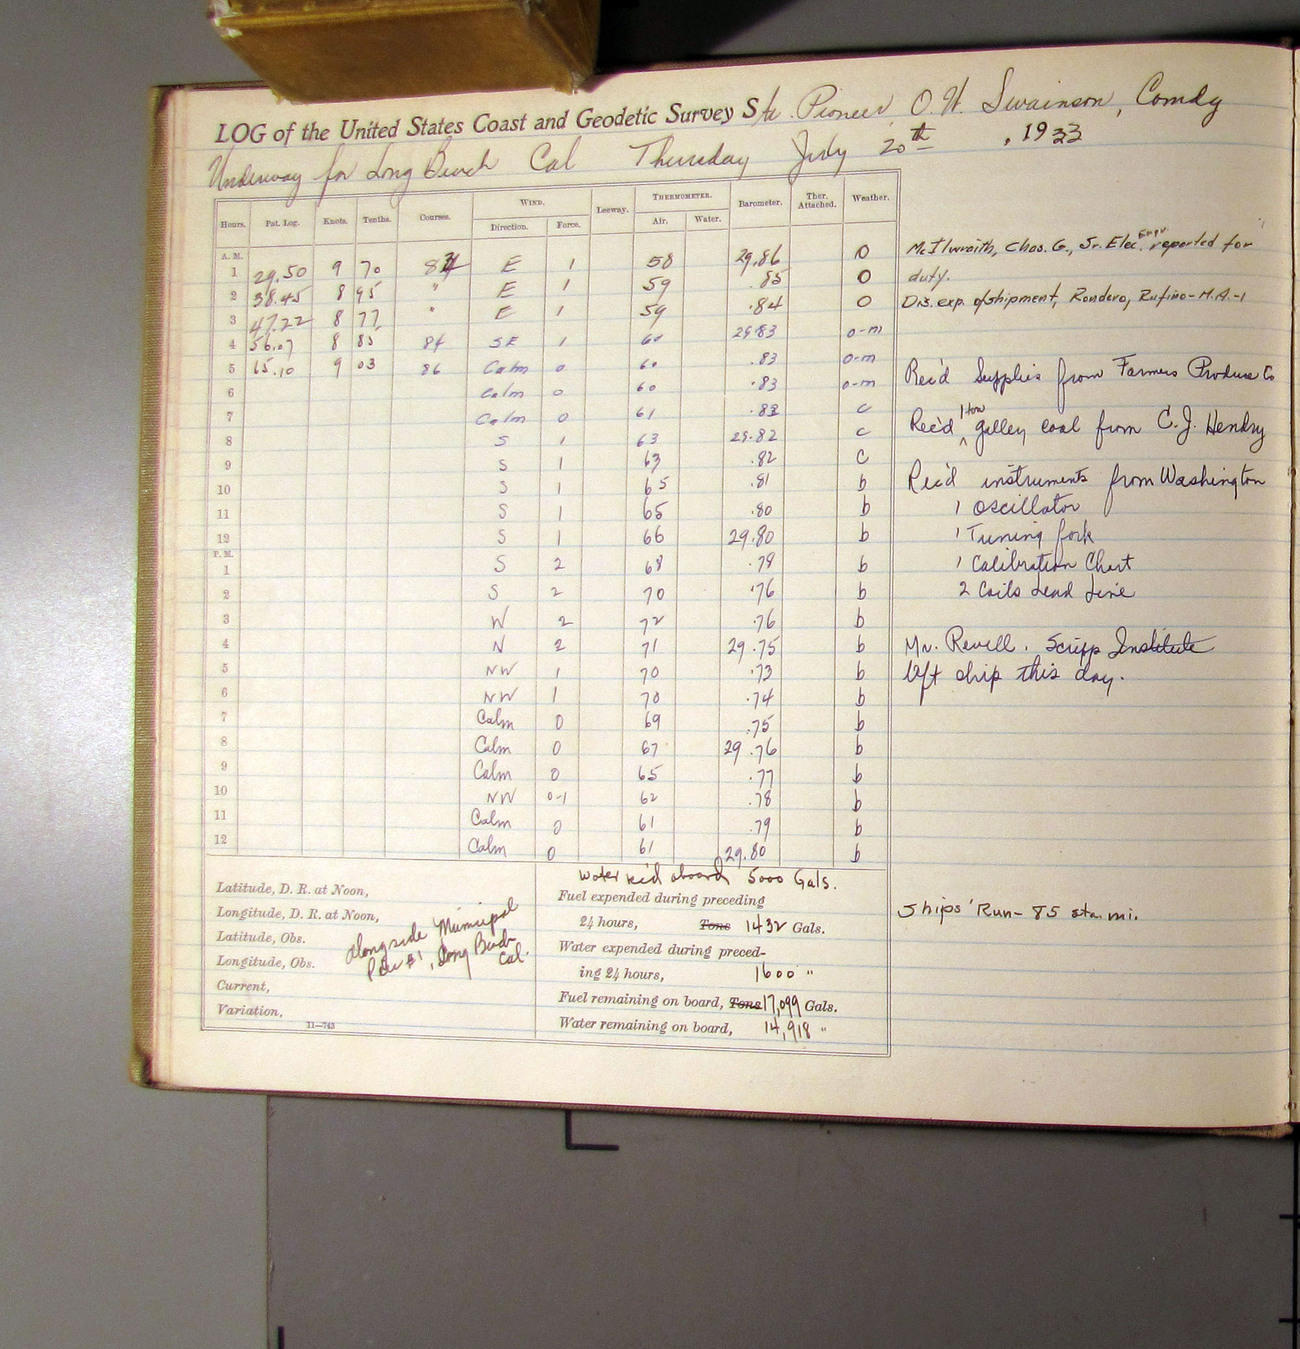 LOG of the United States Coast and Geodetic Survey Str. Pioneer, O. W. Swainson, Comdg
Underway for Long Beach Cal Thursday July 20th, 1933
Hours. Pat. Log. Knots. Tenths. Courses. WIND. Leeway. THERMOMETER. Barometer. Ther. Attached. Weather.
Direction. Force. Air. Water.
A. M.
1 29.50 9 70 84 E 1 58 29.86 O
2 38.45 8 95 " E 1 59 .85 O
3 47.22 8 77 " E 1 59 .84 O
4 56.07 8 85 84 SE 1 60 29.83 o-m
5 65.10 9 03 86 Calm 0 60 .83 o-m
6 Calm 0 60 .83 o-m
7 Calm 0 61 .83 c
8 S 1 63 29.82 c
9 S 1 63 .82 c
10 S 1 65 .81 b
11 S 1 65 .80 b
12 S 1 66 29.80 b
P. M.
1 S 2 68 .79 b
2 S 2 70 .76 b
3 W 2 72 .76 b
4 N 2 71 29.75 b
5 NW 1 70 .73 b
6 NW 1 70 .74 b
7 Calm 0 69 .75 b
8 Calm 0 67 29.76 b
9 Calm 0 65 .77 b
10 NW 0-1 62 .78 b
11 Calm 0 61 .79 b
12 Calm 0 61 29.80 b
McIlwraith, Chas. G., Jr. Elec. Engr. reported for
duty.
Dis. exp. of shipment, Rondero, Rufino-M.A.-1
Rec'd Supplies from Farmers Produce Co
Rec'd 1 ton galley coal from C.J. Hendry
Rec'd instruments from Washington
1 Oscillator
1 Tuning fork
1 Calibration Chart
2 Coils Lead Line
Mr. Revell. Scripp Institute
left ship this day.
Ships' Run- 85 sta. mi.
Latitude, D. R. at Noon,
Longitude, D. R. at Noon,
Latitude, Obs.
Longitude, Obs.
Current,
Variation,
alongside Municipal
Pier #1, Long Beach
Cal.
11—743
Water rec'd aboard 5000 Gals.
Fuel expended during preceding
24 hours, Tons 1432 Gals.
Water expended during preced-
ing 24 hours, 1600 "
Fuel remaining on board, Tons 17,099 Gals.
Water remaining on board, 14,918 "